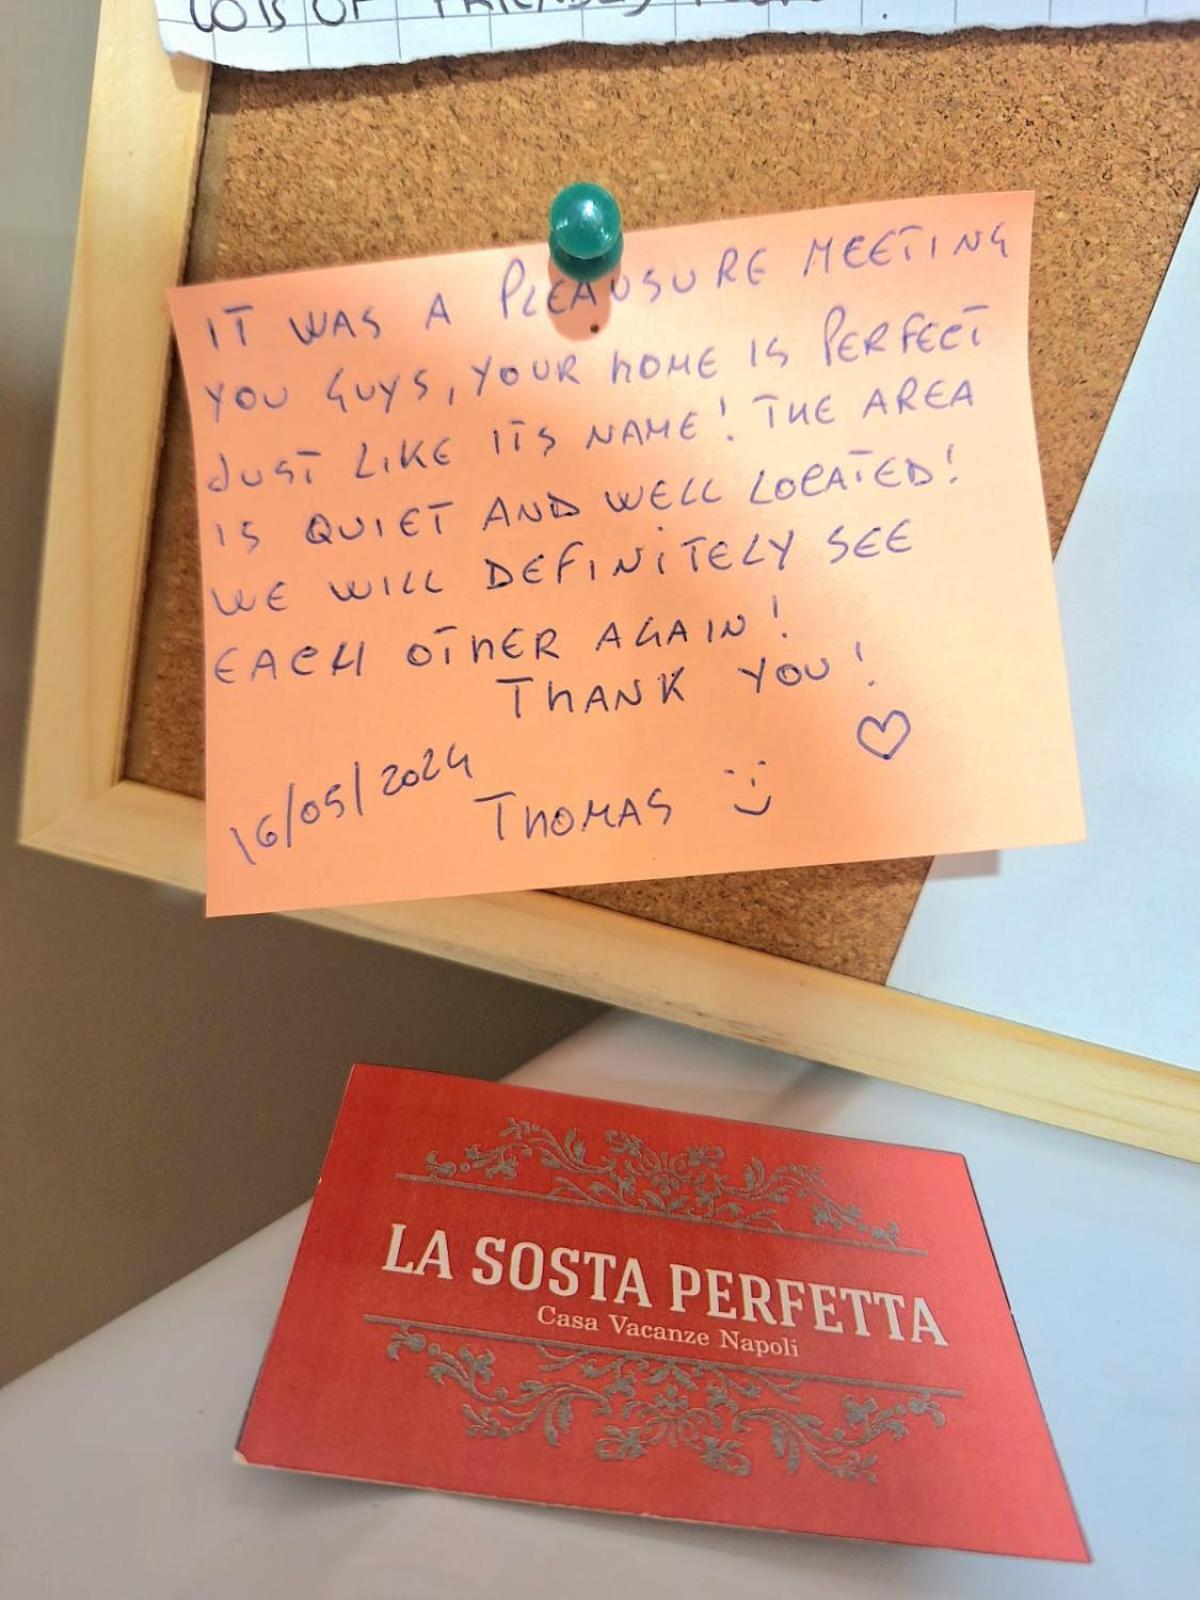 LOTS OF FRIENDLY
IT WAS A PLEAUSURE MEETING
YOU GUYS, YOUR HOME IS PERFECT
JUST LIKE ITS NAME! THE AREA
IS QUIET AND WELL LOCATED!
WE WILL DEFINITELY SEE
EACH OTHER AGAIN!
THANK YOU!
♡
16/05/2024
THOMAS :)
LA SOSTA PERFETTA
Casa Vacanze Napoli